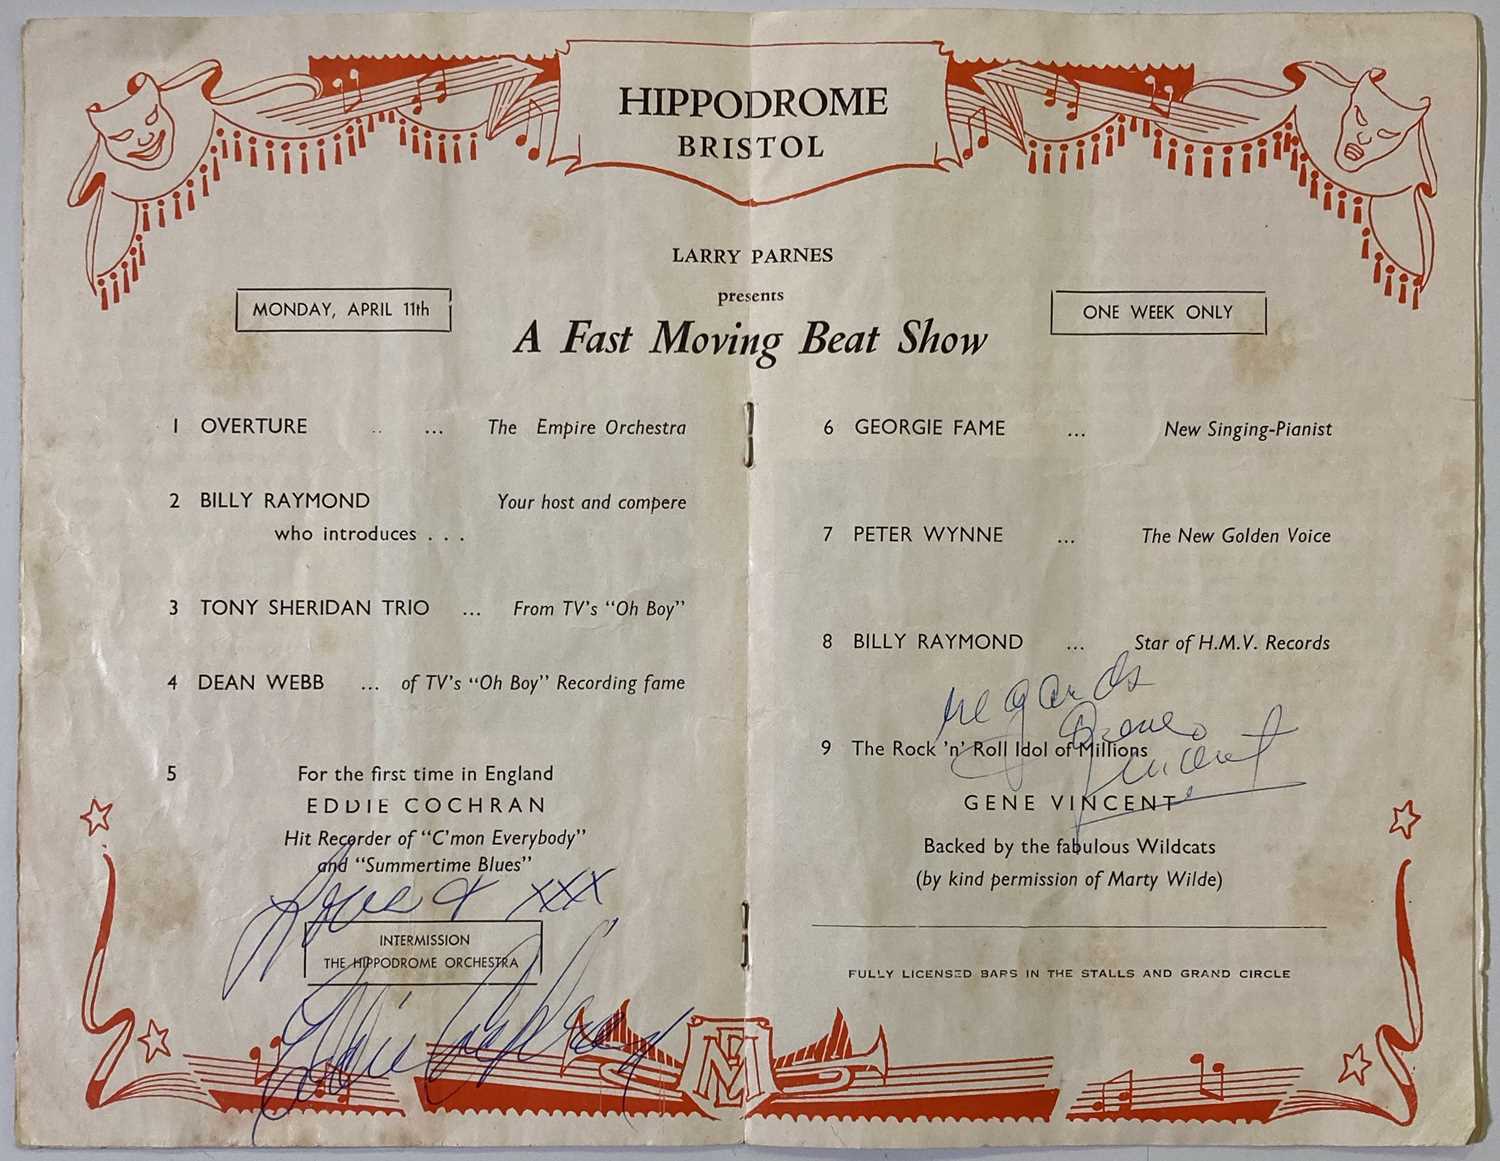 HIPPODROME
BRISTOL
LARRY PARNES
presents
MONDAY, APRIL 11th
ONE WEEK ONLY
A Fast Moving Beat Show
1 OVERTURE .. ... The Empire Orchestra
2 BILLY RAYMOND Your host and compere
who introduces . . .
3 TONY SHERIDAN TRIO ... From TV's "Oh Boy"
4 DEAN WEBB ... of TV's "Oh Boy" Recording fame
5 For the first time in England
EDDIE COCHRAN
Hit Recorder of "C'mon Everybody"
and "Summertime Blues"
Love & XXX
INTERMISSION
THE HIPPODROME ORCHESTRA
Eddie Cochran
6 GEORGIE FAME ... New Singing-Pianist
7 PETER WYNNE ... The New Golden Voice
8 BILLY RAYMOND ... Star of H.M.V. Records
regards
Gene
Vincent
9 The Rock 'n' Roll Idol of Millions
GENE VINCENT
Backed by the fabulous Wildcats
(by kind permission of Marty Wilde)
FULLY LICENSED BARS IN THE STALLS AND GRAND CIRCLE